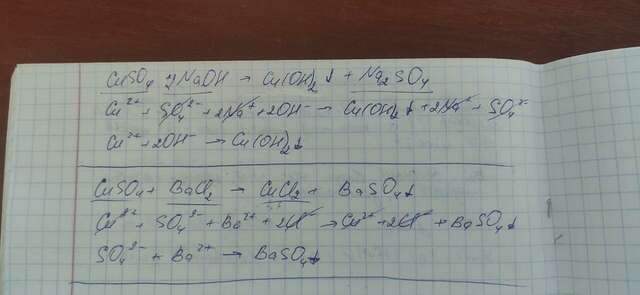 CuSO₄ + 2NaOH → Cu(OH)₂↓ + Na₂SO₄
Cu²⁺ + SO₄²⁻ + 2Na⁺ + 2OH⁻ → Cu(OH)₂↓ + 2Na⁺ + SO₄²⁻
Cu²⁺ + 2OH⁻ → Cu(OH)₂↓
CuSO₄ + BaCl₂ → CuCl₂ + BaSO₄↓
Cu²⁺ + SO₄²⁻ + Ba²⁺ + 2Cl⁻ → Cu²⁺ + 2Cl⁻ + BaSO₄↓
SO₄²⁻ + Ba²⁺ → BaSO₄↓